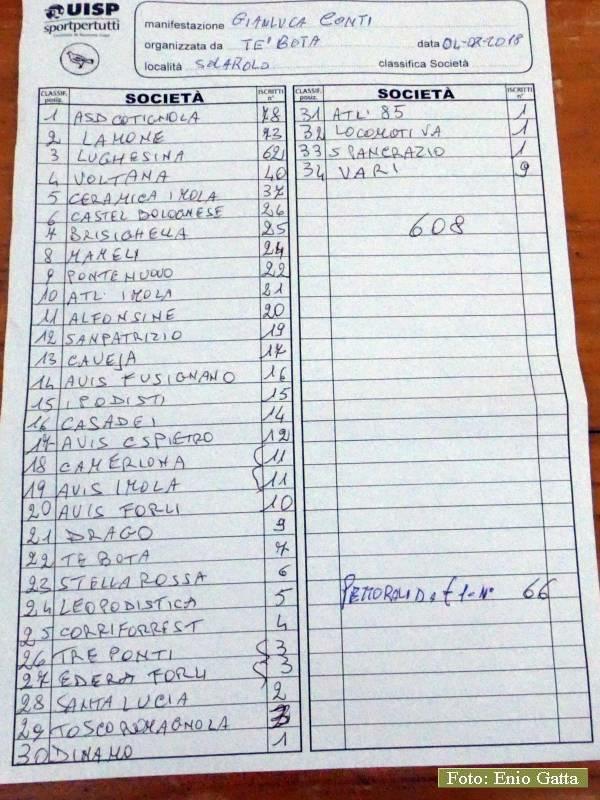 UISP
sportpertutti
manifestazione GIANLUCA CONTI
organizzata da TE' BOTA data 04-02-2018
località SOLAROLO classifica Società
CLASSIF. posiz. SOCIETÀ ISCRITTI n°
1 ASD COTIGNOLA 78
2 LAMONE 73
3 LUGHESINA 62
4 VOLTANA 40
5 CERAMICA IMOLA 37
6 CASTEL BOLOGNESE 26
7 BRISIGHELLA 25
8 MAMELI 24
9 PONTENUOVO 22
10 ATL' IMOLA 21
11 ALFONSINE 20
12 SANPATRIZIO 19
13 CAVEJA 17
14 AVIS FUSIGNANO 16
15 IPODISTI 15
16 CASADEI 14
17 AVIS CSPIETRO 12
18 CAMERLONA 11
19 AVIS IMOLA 11
20 AVIS FORLI 10
21 DRAGO 9
22 TE BOTA 7
23 STELLA ROSSA 6
24 LEOPODISTICA 5
25 CORRIFORREST 4
26 TRE PONTI 3
27 EDERA FORLI 3
28 SANTA LUCIA 2
29 TOSCOROMAGNOLA
30 DINAMO 1
CLASSIF. posiz. SOCIETÀ ISCRITTI n°
31 ATL' 85 1
32 LOCOMOTIVA 1
33 SPANCRAZIO 1
34 VARI 9
608
PETTORALI D. € 1 - N° 66
Foto: Enio Gatta